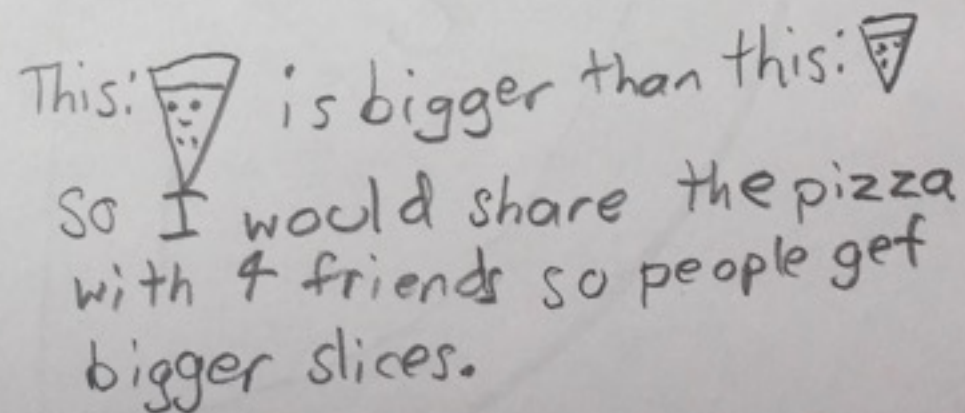 This: is bigger than this:
so I would share the pizza
with 4 friends so people get
bigger slices.